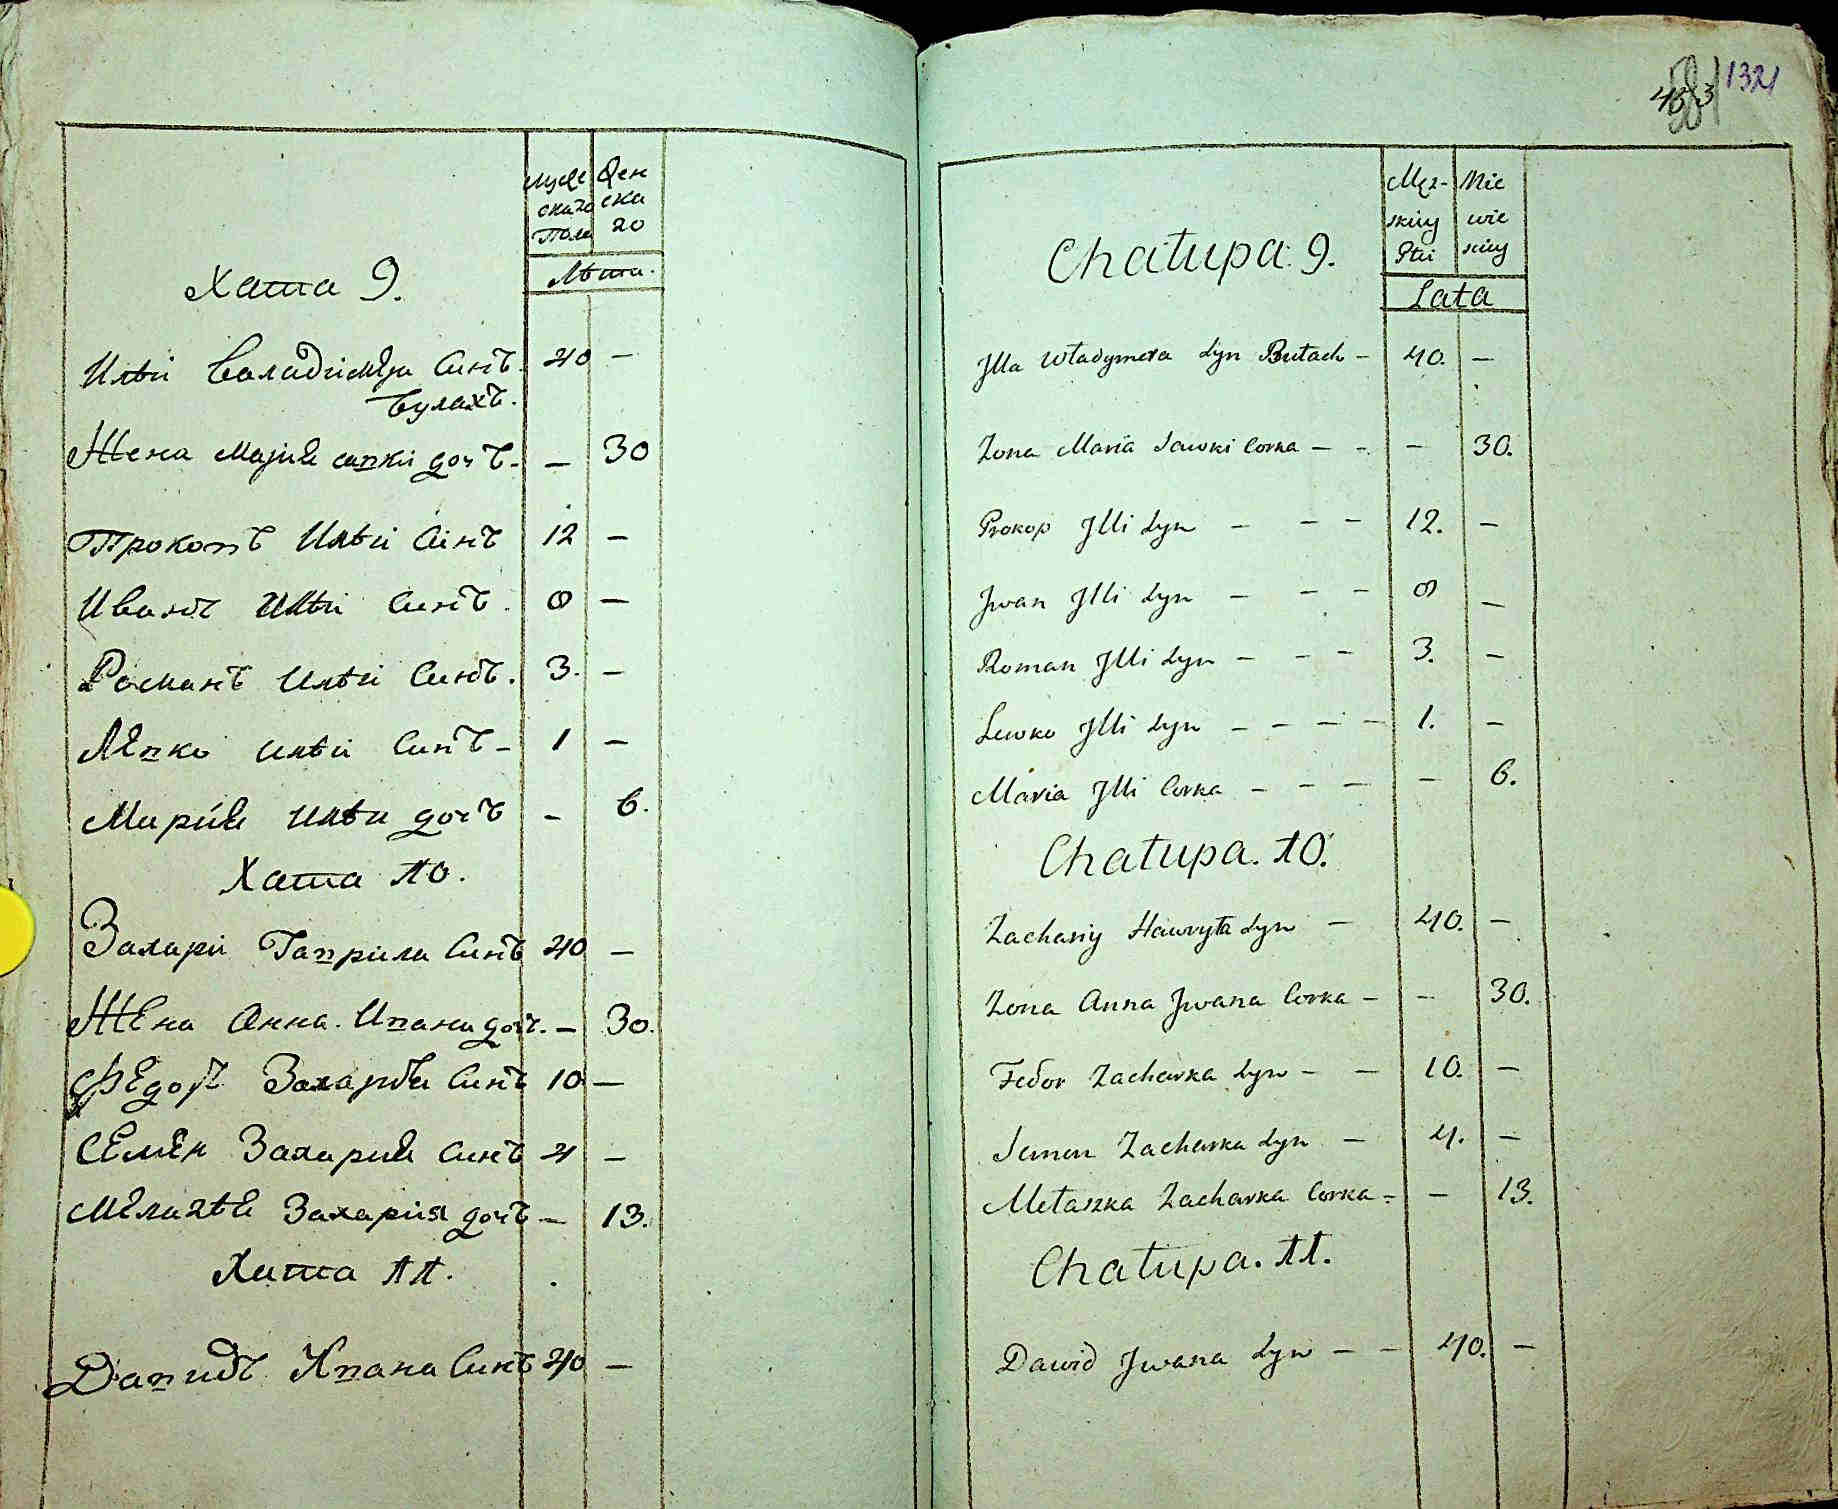 Муже Фен
скаго ска
Пола го
Лѣта.
Хата 9.
Илѣи Валадимѣра Синъ. 40 —
Булахъ.
Жена Маріѣ сапки дочъ. — 30
Прокопъ Илѣи Синъ 12 —
Иванъ Илѣи Синъ. 8 —
Романъ Илѣи Синъ. 3. —
Лепко Илѣи Синъ — 1 —
Маріѣ Илѣи дочъ — 6.
Хата 10.
Захари Гапріла Синъ 40 —
Жена Анна. Ипана доч. — 30.
Федоръ Захарѣи Синъ 10 —
Семен Захариѣ Синъ 4 —
Мелахѣѣ Захарія дочъ — 13.
Хата 11.
Дапидъ Ипана Синъ 40 —
1321
Męz- Nie
skiey wie
Płci skiey
Lata
Chałupa. 9.
Jlla Władymera Syn Bułach — 40. —
Zona Maria Sawki Corka — - — 30.
Prokop Jlli Syn — — — 12. —
Jwan Jlli Syn — — — 8 —
Roman Jlli Syn — — — 3. —
Lewko Jlli Syn — — — — 1. —
Maria Jlli Corka — — — — 6.
Chałupa. 10.
Zachariy Hawryła Syn — 40. —
Zona Anna Jwana Corka — — 30.
Fedor Zacharka Syn — — 10. —
Semen Zacharka Syn — 4. —
Mełaszka Zacharka Corka = — 13.
Chałupa. 11.
Dawid Jwana Syn — — 40. —